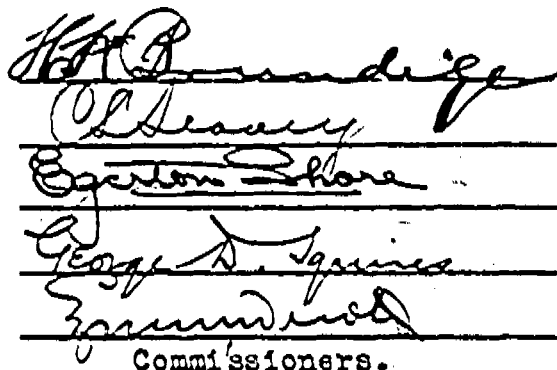 H. W. Brundige
C. L. Seavey
Egerton Shore
George D. Squires
Commissioners.